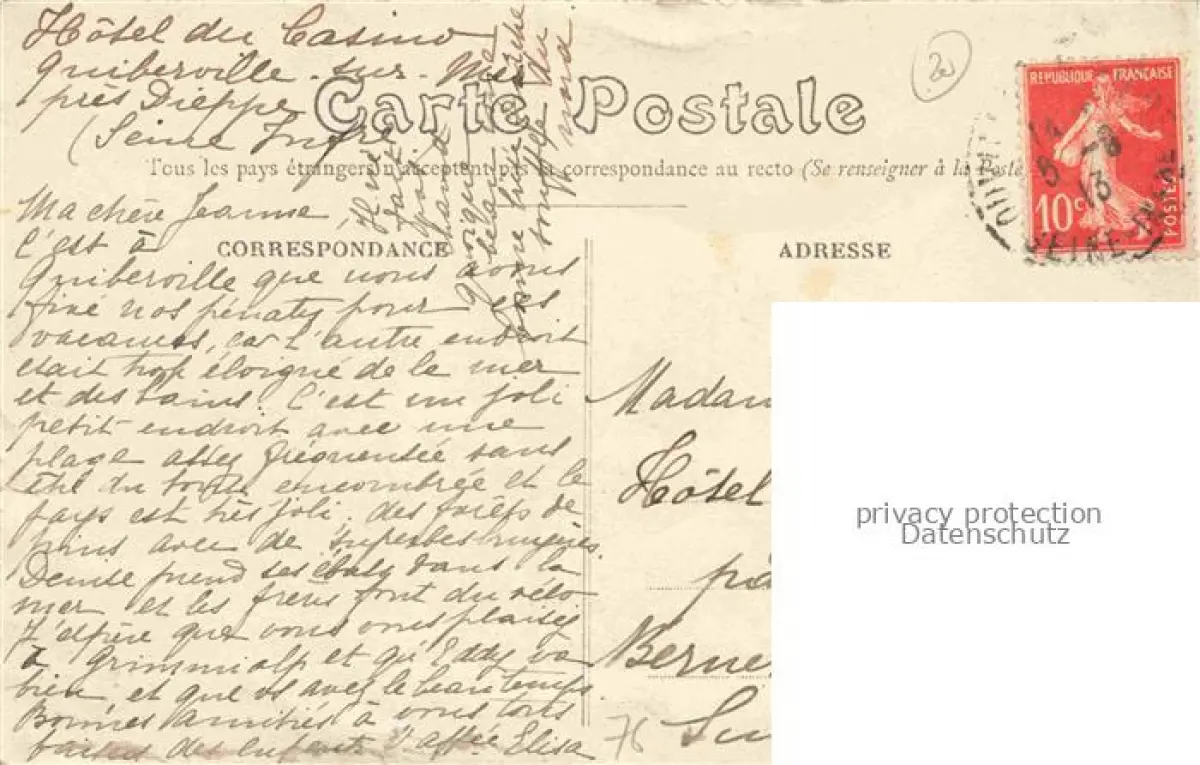 Hôtel du Casino
Quiberville-sur-Mer
près Dieppe
(Seine Infre)
Carte Postale
Tous les pays étrangers n'acceptent pas la correspondance au recto (Se renseigner à la Poste)
CORRESPONDANCE
ADRESSE
REPUBLIQUE FRANÇAISE
10c
POSTES
8-8
13
Ma chère Jeanne,
C'est à
Quiberville que nous avons
fixé nos pénates pour ces
vacances, car l'autre endroit
était trop éloigné de la mer
et des bains. C'est un joli
petit endroit avec une
plage assez fréquentée sans
être du tout encombrée et le
pays est très joli, des forêts de
pins avec de superbes
Denise prend ses dans la
mer et les frères font du vélo
J'espère que vous vous plaisez
à Grimmialp et qu'Eddy va
bien et que vs avez le beau temps.
Bonnes amitiés à vous tous
baisers des enfants Elisa
Madam
Hôtel
Berne
Su
76
20
privacy protection
Datenschutz